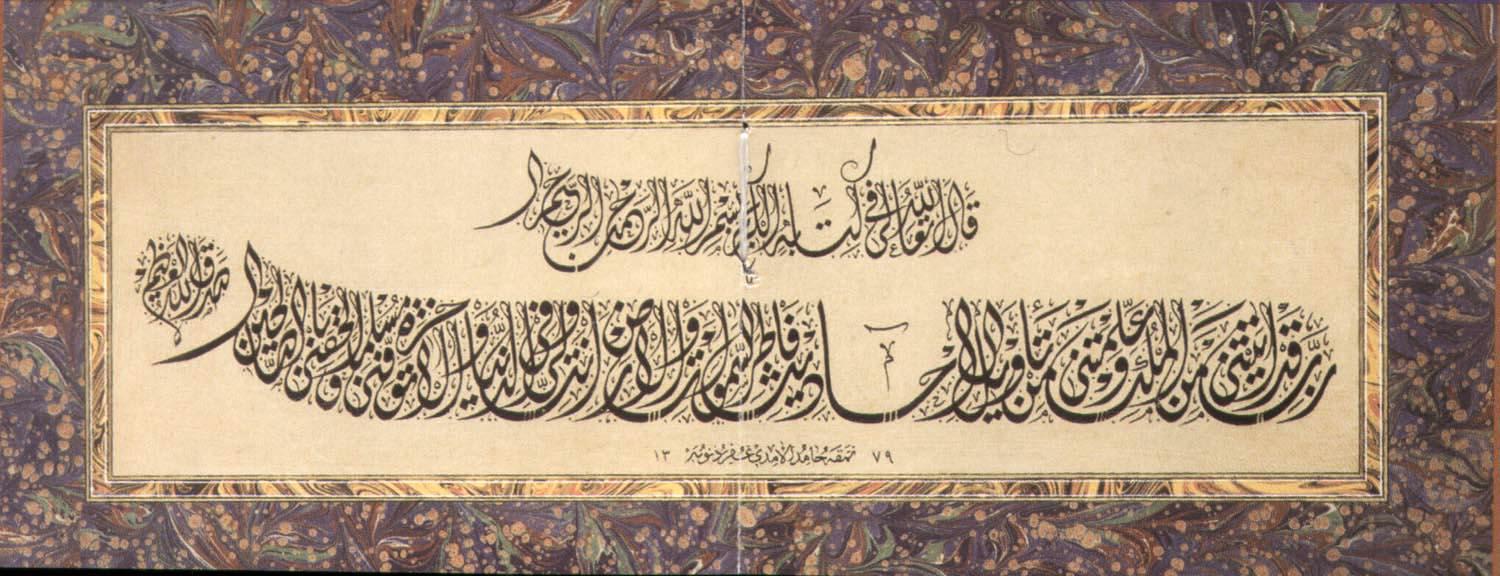 قال الله تعالى في كتابه الكريم بسم الله الرحمن الرحيم
رب قد اتيتنى من الملك وعلمتنى من تاويل الاحاديث فاطر السموات والارض انت ولى فى الدنيا والاخرة توفنى مسلما والحقنى بالصالحين
صدق الله العظيم
١٣ نمقه حامد الآمدي غفر ذنوبه ٧٩